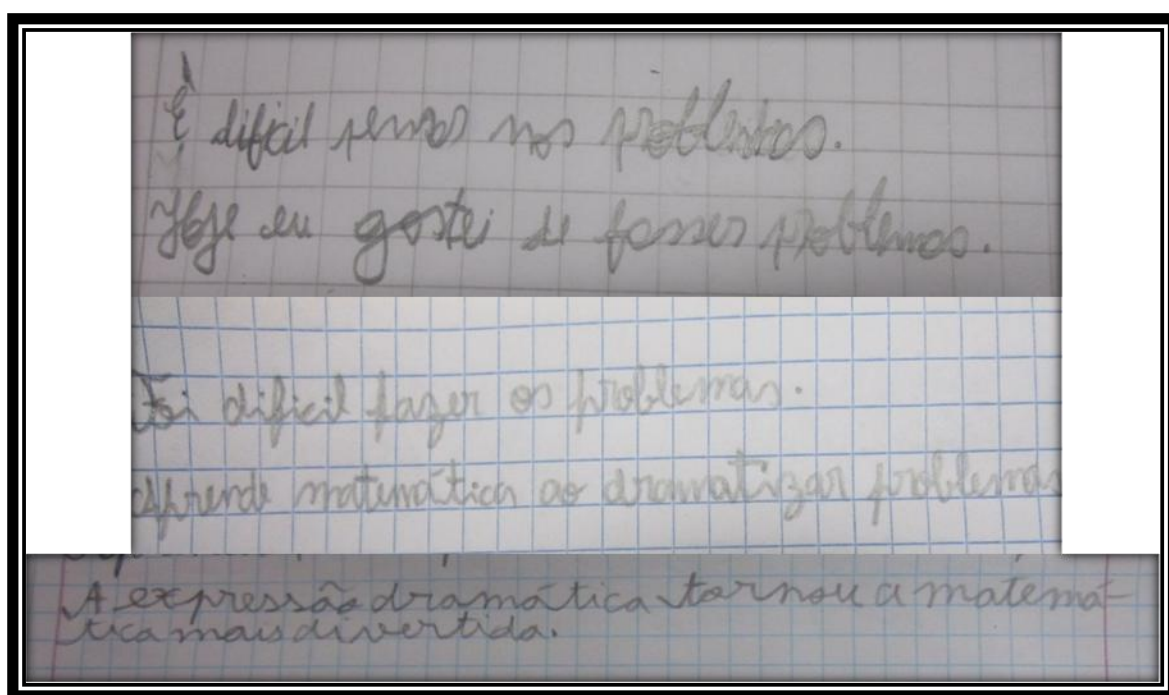 É dificil pensar nos problemas.
Hoje eu gostei de fasser problemas.
Foi dificil fazer os problemas.
Aprende matemática ao dramatizar problemas
A expressão dramática tornou a matemá-
tica mais divertida.